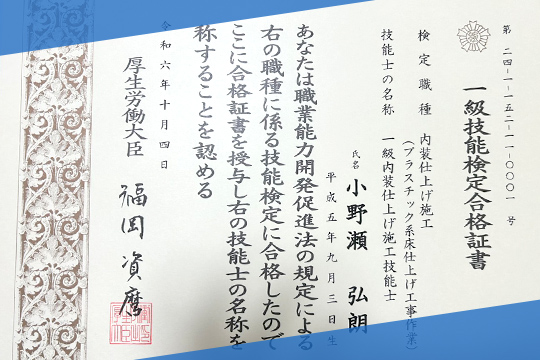 第二四-一-一五二-一一-〇〇〇一号
一級技能検定合格証書
検定職種 内装仕上げ施工
(プラスチック系床仕上げ工事作業)
技能士の名称 一級内装仕上げ施工技能士
氏名 小野瀬 弘朗
平成五年九月三日生
あなたは職業能力開発促進法の規定による
右の職種に係る技能検定に合格したので
ここに合格証書を授与し右の技能士の名称を
称することを認める
令和六年十月四日
厚生労働大臣 福岡資麿